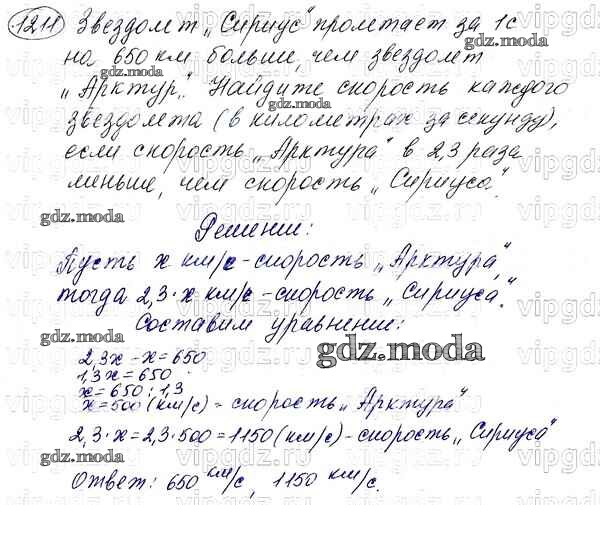 1211 Звездолет „Сириус" пролетает за 1с
на 650 км больше, чем звездолет
„Арктур". Найдите скорость каждого
звездолета (в километрах за секунду),
если скорость „Арктура" в 2,3 раза
меньше, чем скорость „Сириуса".
Решение:
Пусть х км/с - скорость „Арктура",
тогда 2,3·х км/с - скорость „Сириуса".
Составим уравнение:
2,3х - х = 650
1,3х = 650
х = 650 : 1,3
х = 500 (км/с) - скорость „Арктура"
2,3·х = 2,3·500 = 1150 (км/с) - скорость „Сириуса"
Ответ: 650 км/с, 1150 км/с.
gdz.moda
gdz.moda
gdz.moda
gdz.moda
gdz.moda
gdz.moda
gdz.moda
gdz.moda
vipgdz